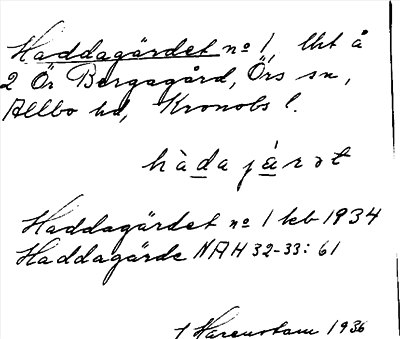 Haddagärdet no 1, lht å
2 Ör Bergagård, Örs sn,
Allbo hd, Kronobs l.
hàda járət
Haddagärdet no 1 keb 1934
Haddagärde NAH 32-33: 61
Harenstam 1936